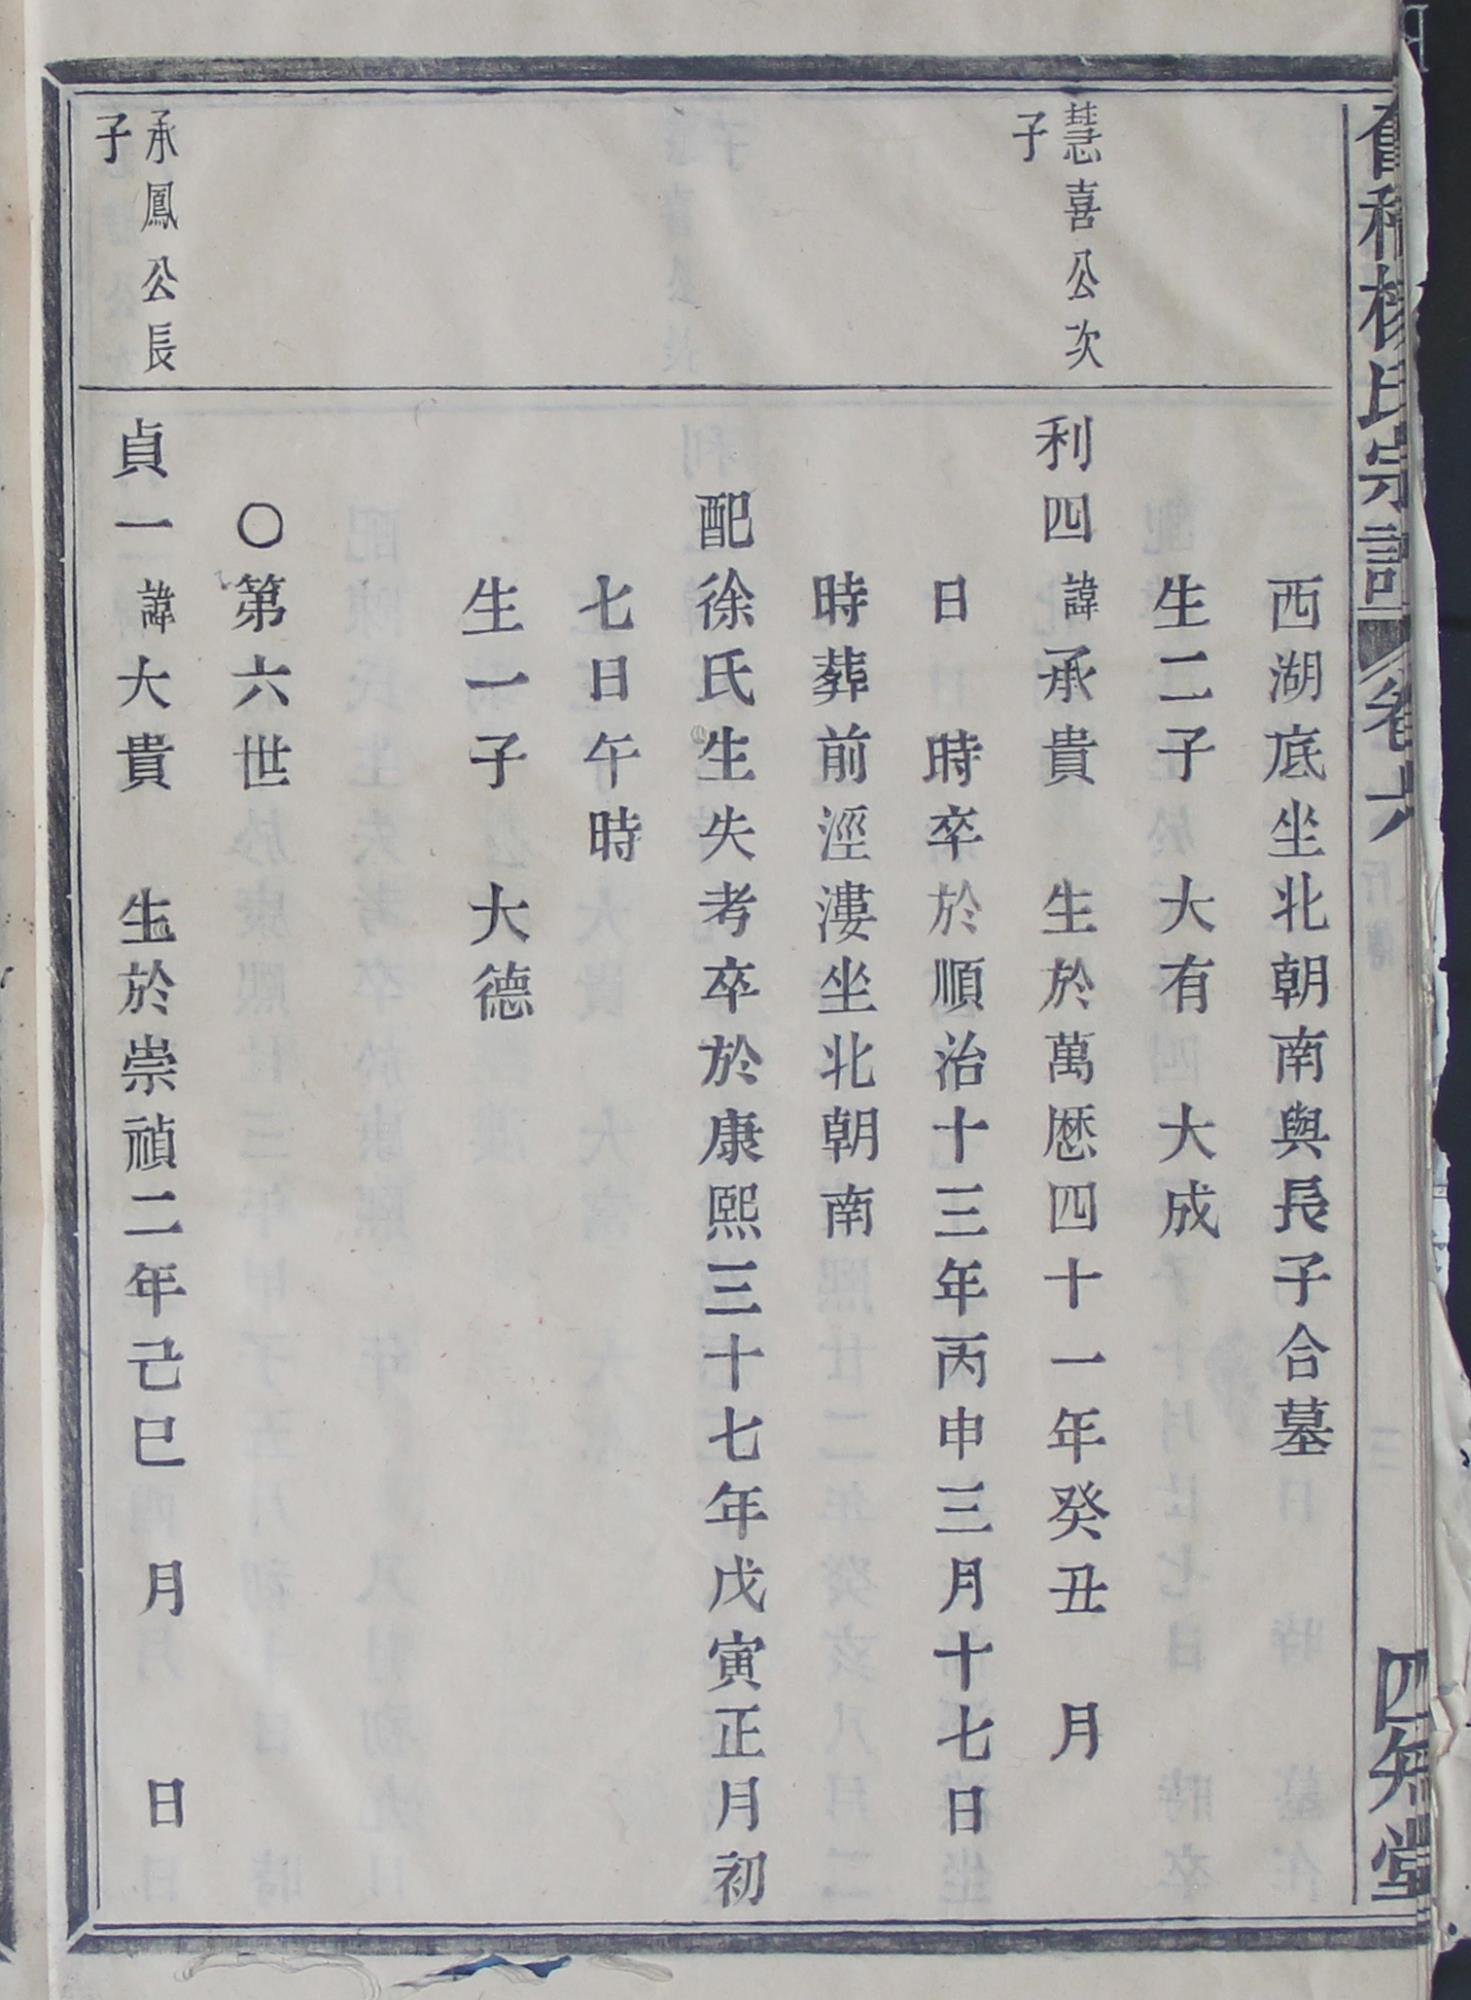 楊氏宗譜 卷六 四知堂
西湖底坐北朝南與長子合墓
生二子 大有 大成
慧喜公次子
利四 諱承貴 生於萬厯四十一年癸丑 月
日 時卒於順治十三年丙申三月十七日
時葬前涇漊坐北朝南
配徐氏生失考卒於康熙三十七年戊寅正月初
七日午時
生一子 大德
〇第六世
承鳳公長子
貞一 諱大貴 生於崇禎二年己巳 月 日